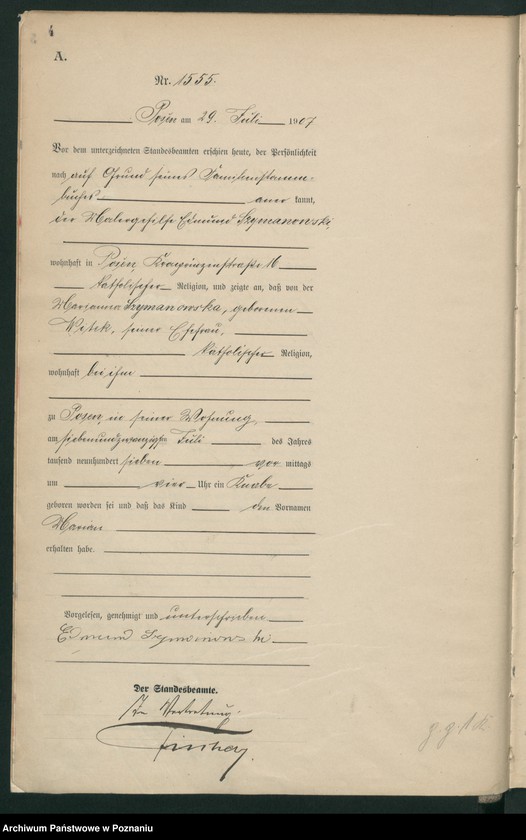 4
A.
Nr. 1555.
Posen am 29. Juli 1907
Vor dem unterzeichneten Standesbeamten erschien heute, der Persönlichkeit
nach auf Grund seines Familienstamm-
buches anerkannt,
der Malergehilfe Edmund Szymanowski,
wohnhaft in Posen, Kronprinzenstraße 16
katholischer Religion, und zeigte an, daß von der
Marianna Szymanowska, geborenen
seiner Ehefrau,
katholischer Religion,
wohnhaft bei ihm
zu Posen, in seiner Wohnung,
am siebenundzwanzigsten Juli des Jahres
tausend neunhundert sieben vor mittags
um vier Uhr ein Knabe
geboren worden sei und daß das Kind den Vornamen
Marian
erhalten habe.
Vorgelesen, genehmigt und unterschrieben
Edmund Szymanowski
Der Standesbeamte.
In Vertretung.
Archiwum Państwowe w Poznaniu